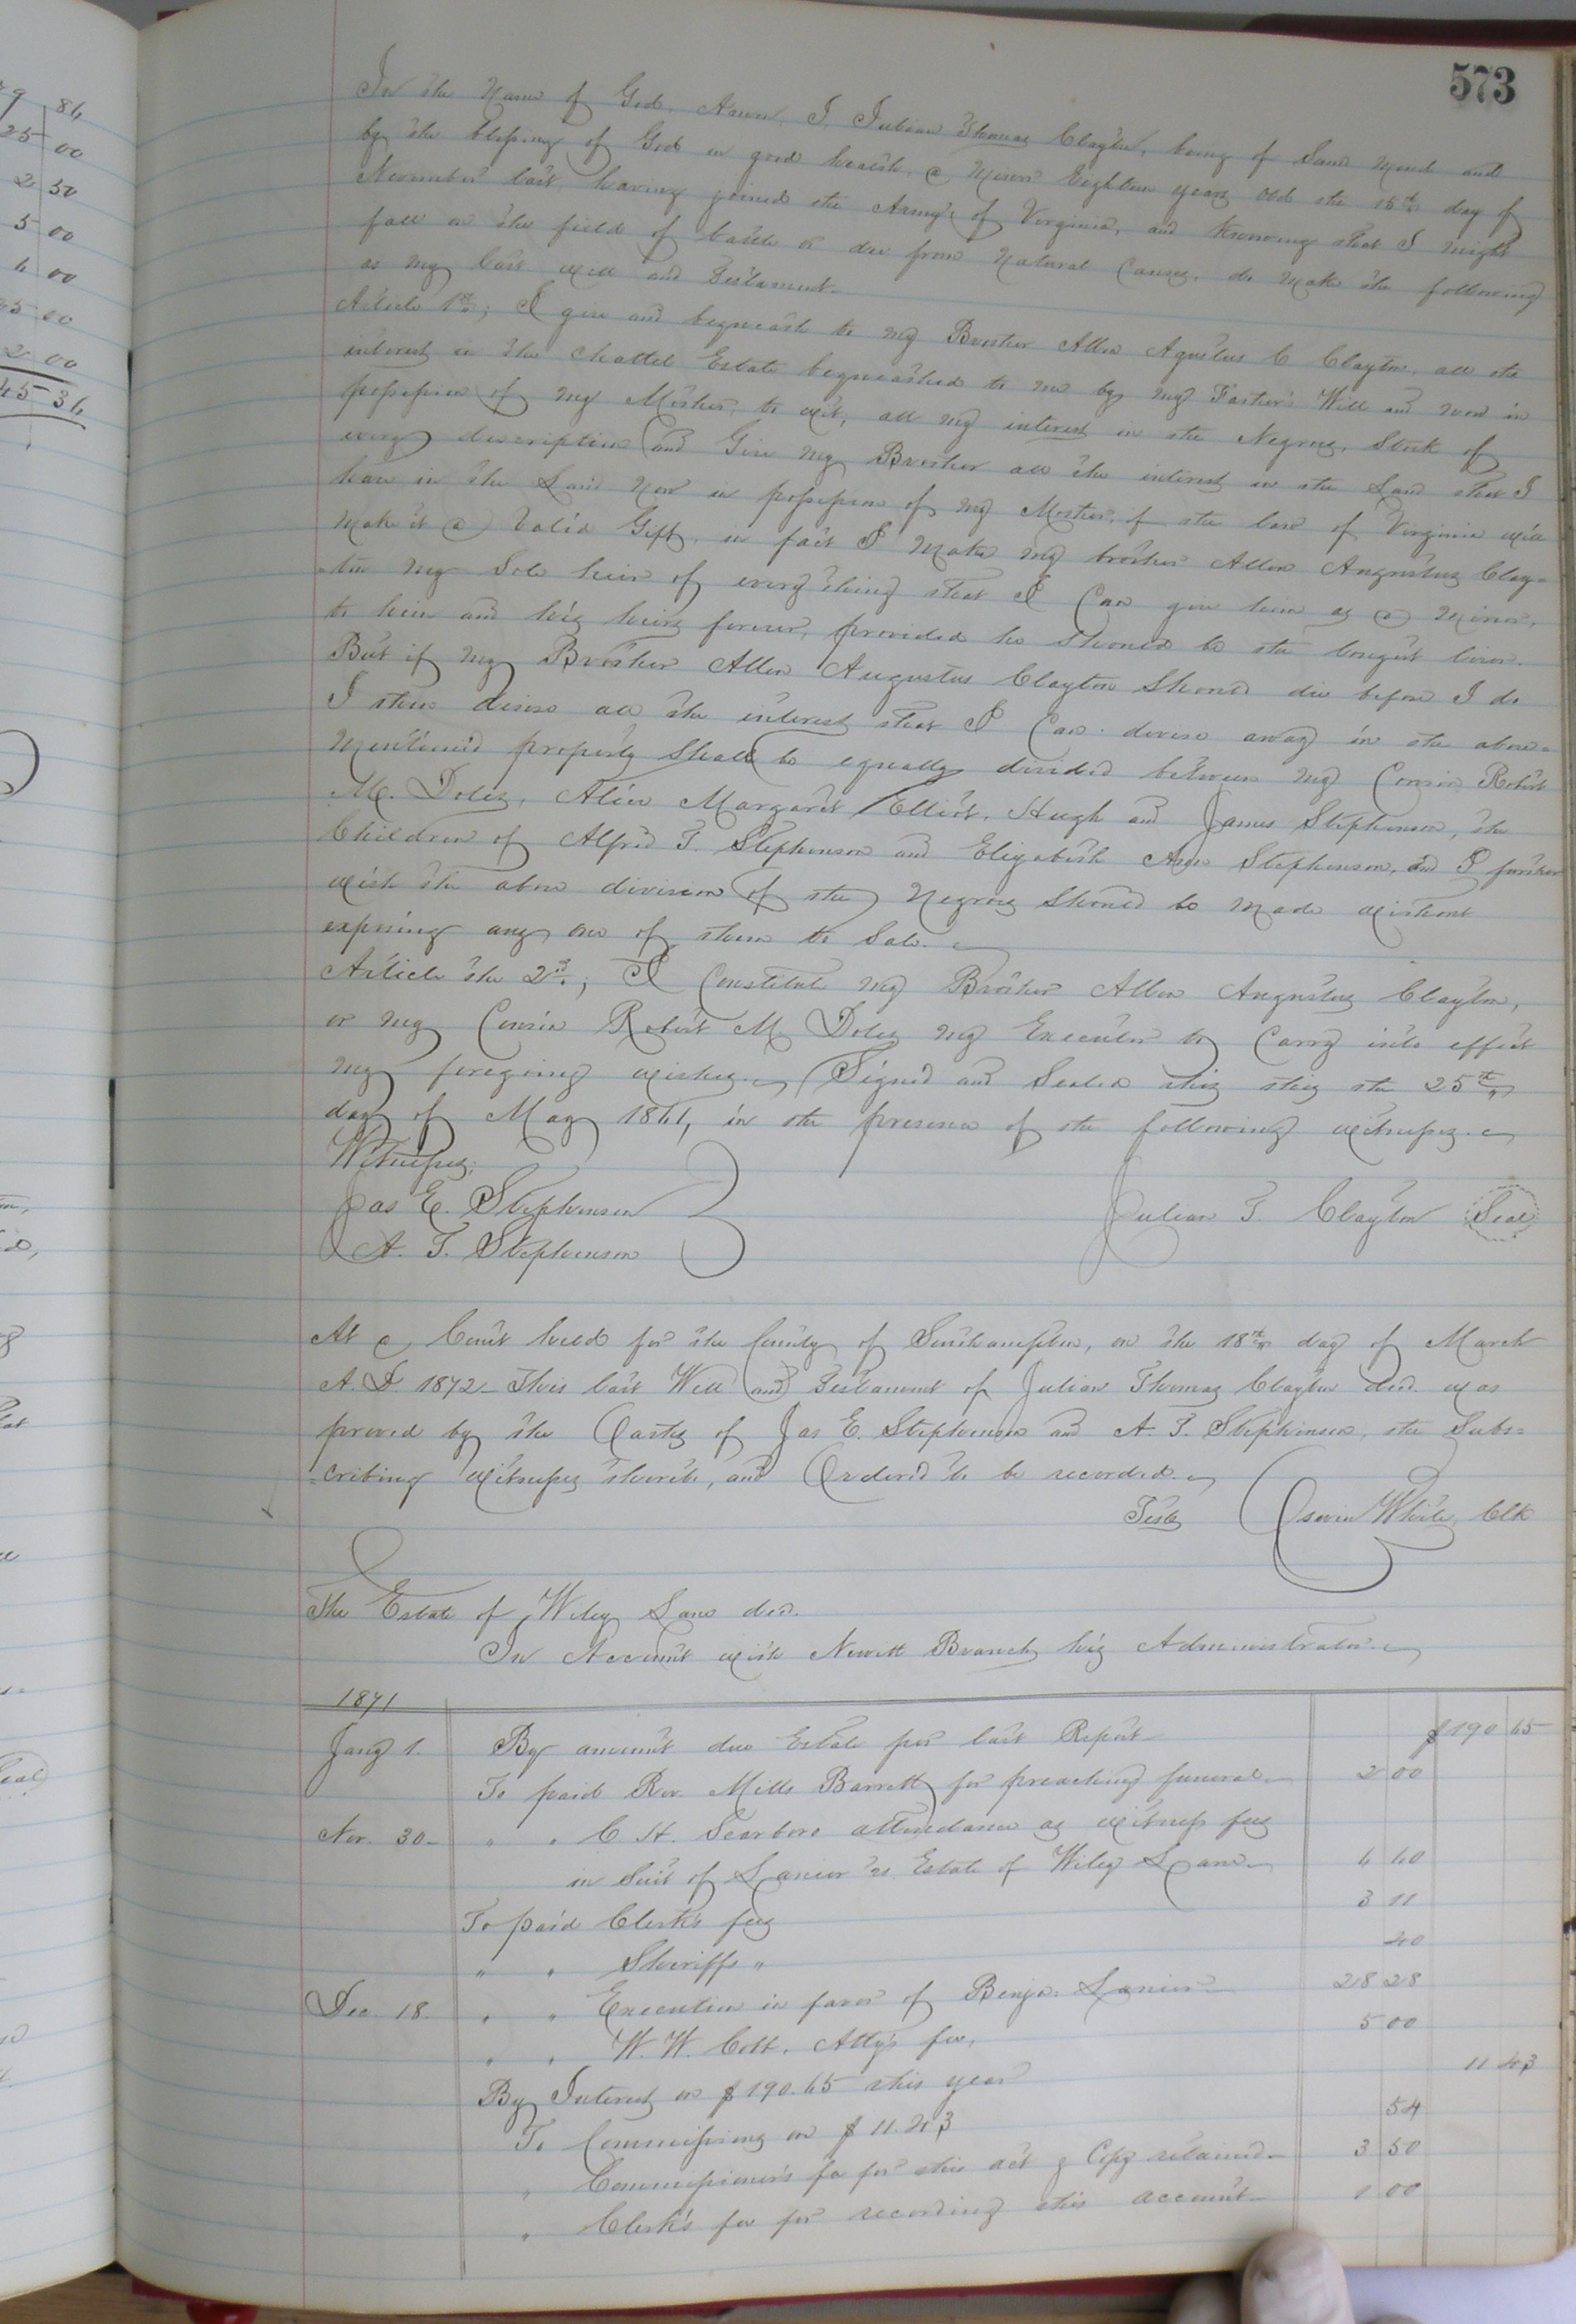 573
In the Name of God. Amen. I, Julian Thomas Clayton, being of Sane mind and
by the blessing of God in good health, a Minor Eighteen years old the 15th day of
November last, having joined the Army of Virginia, and knowing that I might
fall on the field of battle or die from Natural Causes, do make the following
as my last Will and Testament.
Article 1st; I give and bequeath to my Brother Allen Agustus C. Clayton, all the
interest in the chattel Estate bequeathed to me by my Father's Will and now in
possession of my Mother, to wit, all my interest in the Negroes, Stock of
every description and Give my Brother all the interest in the Land that I
have in the Land now in possession of my Mother, if the law of Virginia will
make it a Valid Gift, in fact I make my brother Allen Augustus Clay=
=ton my Sole heir of every thing that I Can give him as a minor,
to him and his heirs forever, provided he should be the longest liver.
But if my Brother Allen Augustus Clayton Should die before I do
I then desire all the interest that I Can devise away in the above=
Mentioned property Shall be equally divided between my Cousin Robert
M. Doles, Alice Margaret Elliott, Hugh and James Stephenson, the
Children of Alfred T. Stephenson and Elizabeth Ann Stephenson, and I further
wish the above division of the Negroes Should be made without
exposing any one of them to Sale.
Article the 2nd; I Constitute my Brother Allen Augustus Clayton,
or my Cousin Robert M Doles my Executor to Carry into effect
my foregoing wishes. Signed and Sealed this the 25th
day of May 1861, in the presence of the following witnesses.
Witnesses;
Jas E. Stephenson
A. T. Stephenson
Julian T. Clayton Seal
At a Court held for the County of Southampton, on the 18th day of March
A. D. 1872 - This last Will and Testament of Julian Thomas Clayton decd. was
proved by the Oaths of Jas E. Stephenson and A. T. Stephenson, the Subs=
=cribing Witnesses thereto, and Ordered to be recorded.
Teste Oswin White, Clk
The Estate of Wiley Lane decd.
In Account with Newitt Branch his Administrator.
1871
Jany 1. By amount due Estate per last Report $190 45
To paid Rev. Mills Barrett for preaching funeral 2 00
Nov. 30 " " C H. Scarboro attendance as witness fees
in Suit of Lanier vs Estate of Wiley Lane 4 40
To paid Clerk's fees 3 11
" " Sheriffs " 40
Dec. 18. " " Execution in favor of Benja. Lanier 28 28
" " W. W. Cobb, Atty's fee, 5 00
By Interest on $190.45 this year 11 43
To Commissions on $11.43 54
" Commissioner's fee for this act & Copy retained 3 50
" Clerk's fee for recording this account 1 00